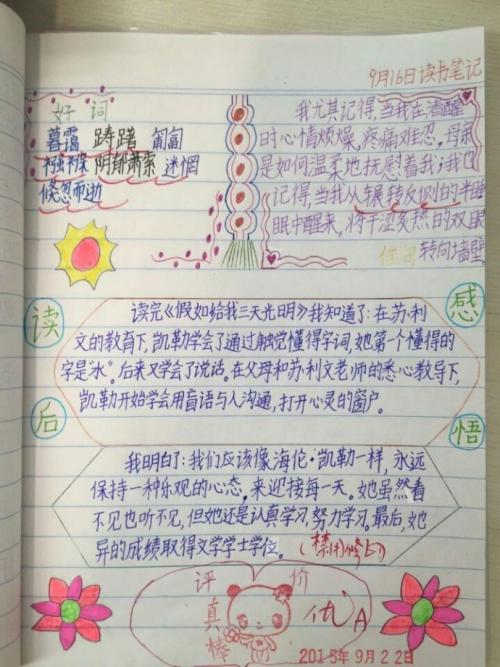 9月16日读书笔记
好词
暮霭 踌躇 匍匐
阴郁萧索 迷惘
倏忽而逝
我尤其记得,当我在清醒
时心情烦燥,疼痛难忍。母亲
是如何温柔地抚慰着我;我也
记得,当我从辗转反侧的半睡
眠中醒来,将干涩炙热的双眼
转向墙壁
佳句
读后
感悟
读完《假如给我三天光明》我知道了:在苏·利
文的教育下,凯勒学会了通过触觉懂得字词,她第一个懂得的
字是“水”。后来又学会了说话。在父母和苏·利文老师的悉心教导下,
凯勒开始学会用盲语与人沟通,打开心灵的窗户。
我明白了:我们应该像海伦·凯勒一样,永远
保持一种乐观的心态,来迎接每一天。她虽然看
不见也听不见,但她还是认真学习,努力学习。最后,她
异的成绩取得文学学士学位。
评价
真棒
优A
2015年9月22日